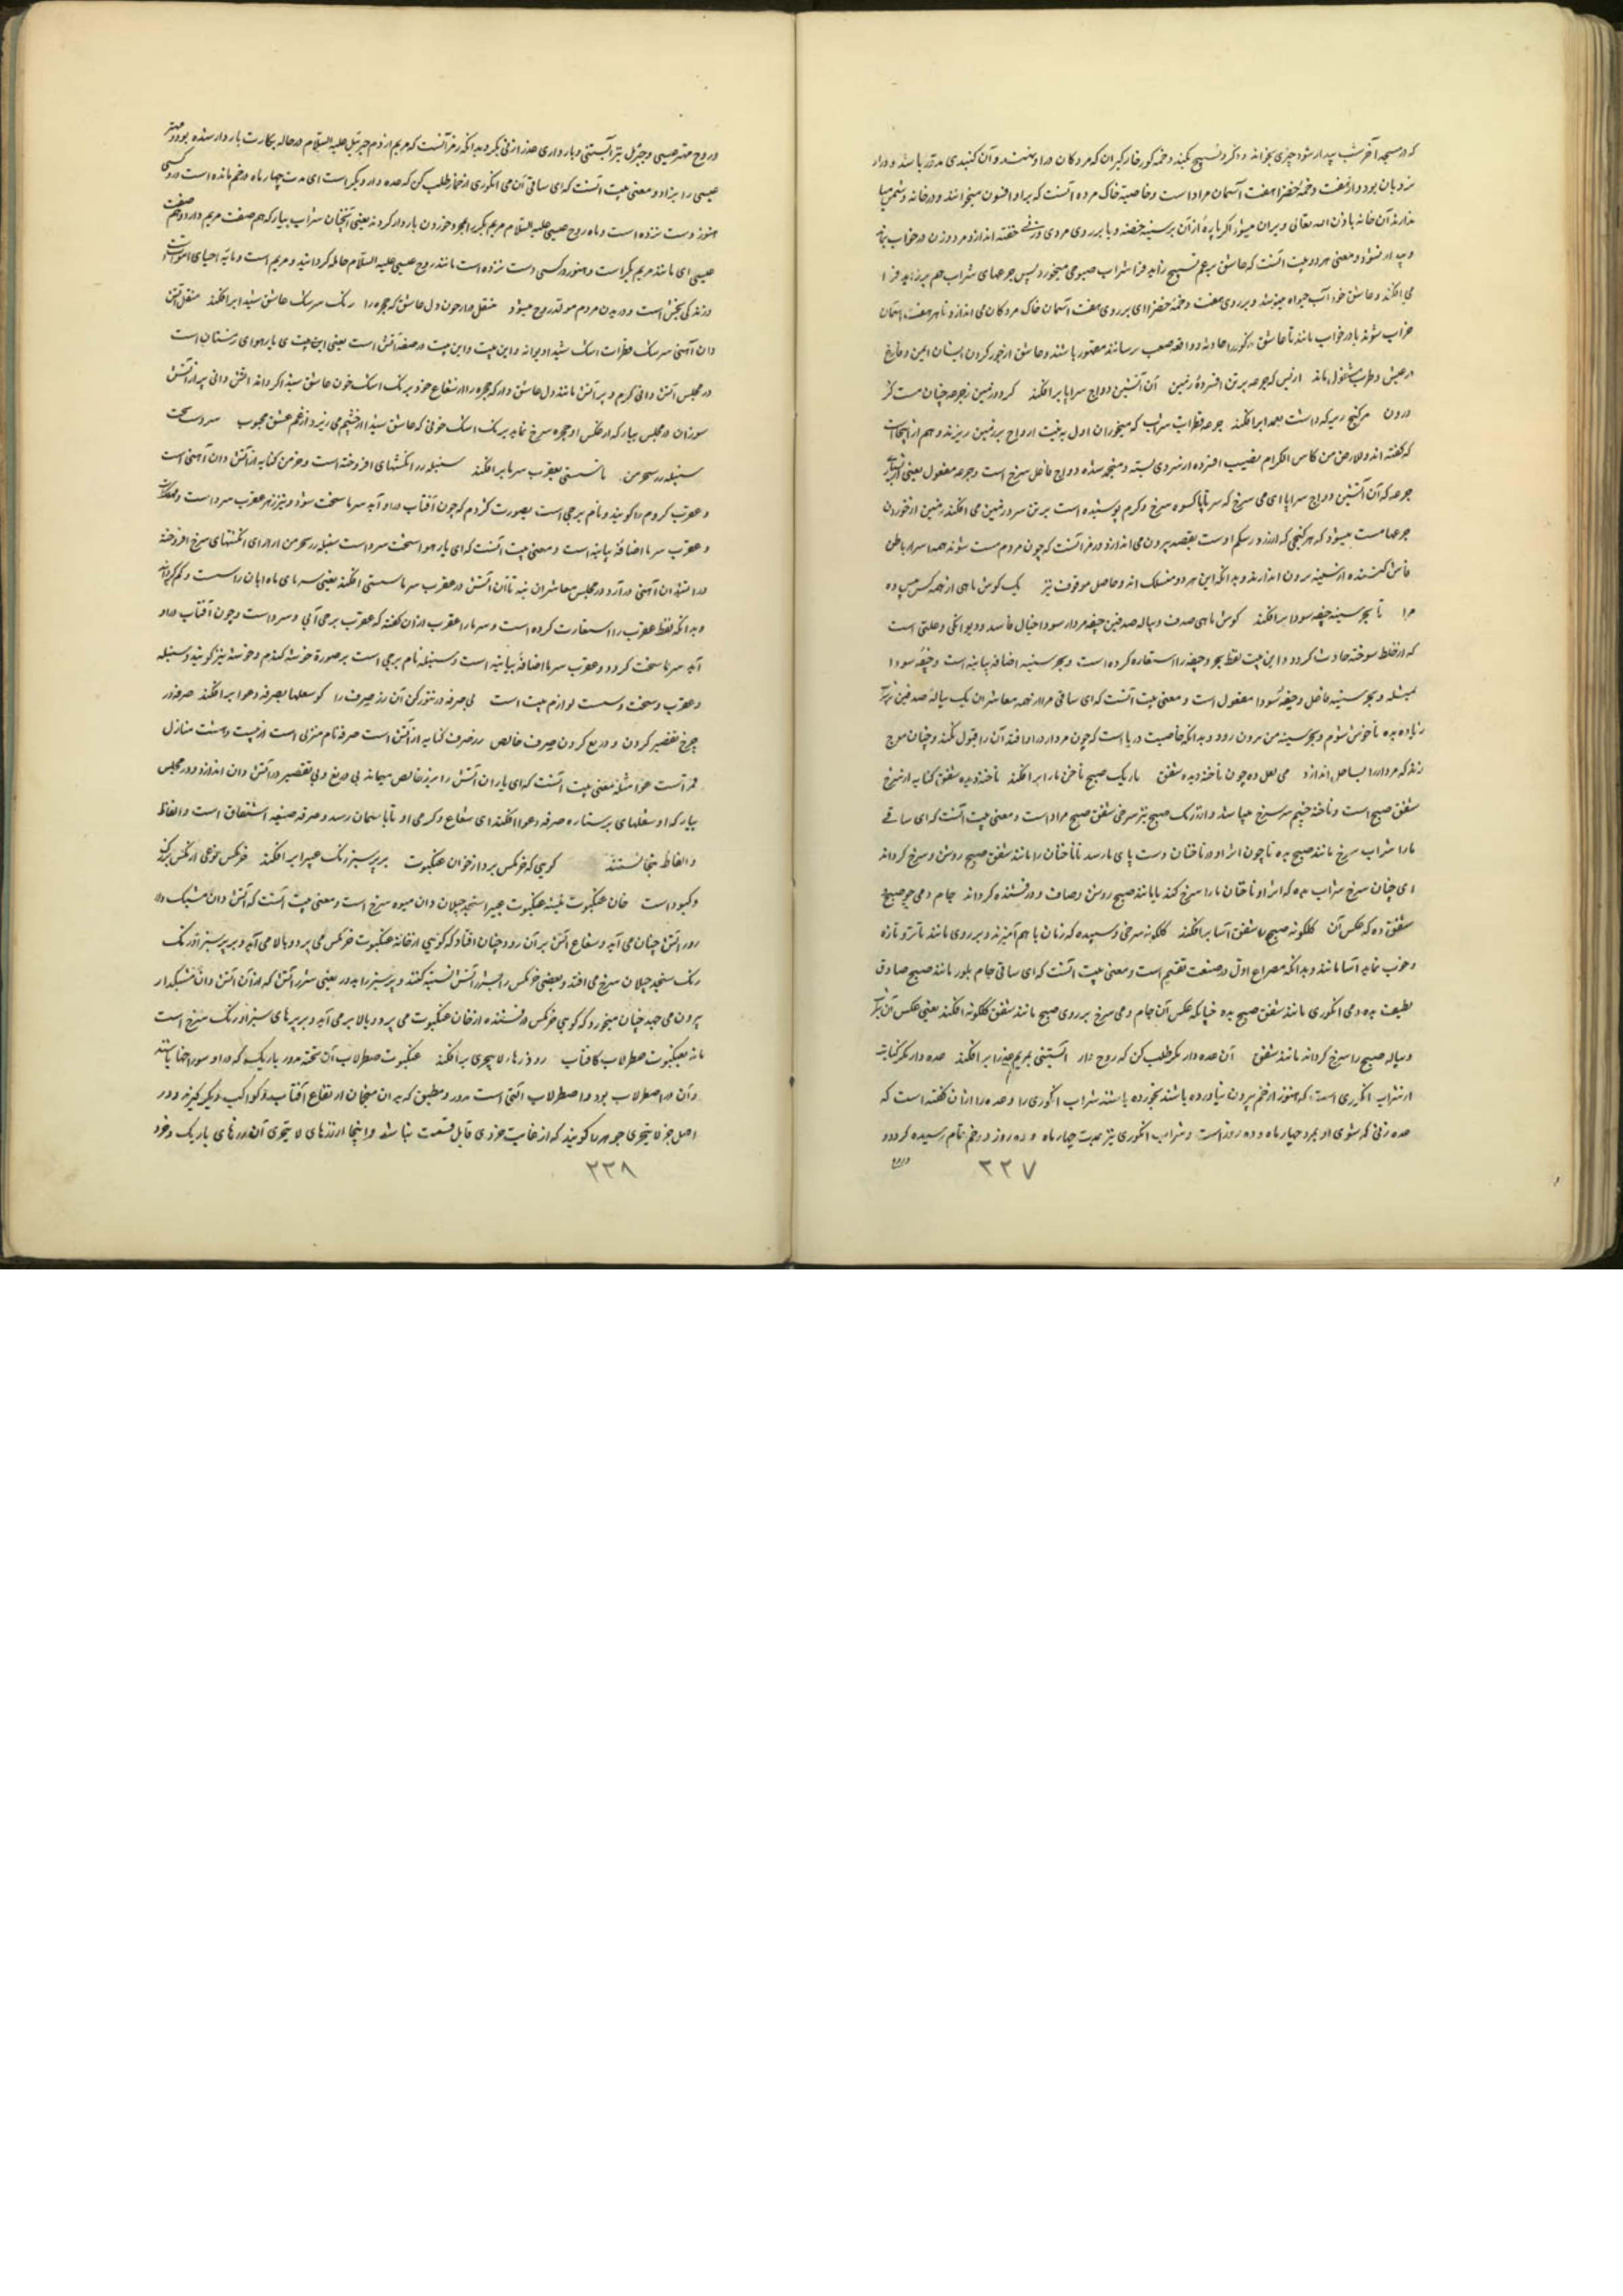 که در مسجد آخر شب بیدار شود چیزی بخواند و ذکر و تسبیح بکند و دخمه کورخانه کبران که مردکان در او نهند و آن کنبدی مدور باشد و در او
نردبان بود و از هفت دخمه خضرا هفت آسمان مراد است و خاصیة خاک مرده آنست که بر او افسون میخوانند و در خانه دشمن
اندازند آن خانه باذن الله تعالی ویران میشود اکر پاره از آن بر سینه خفته و یا بر روی مردی و زنی خفته اندازد مرد و زن در خواب بماند
و بیدار نشود و معنی هر دو بیت آنست که عاشق برغم تسبیح زاهد فرا شراب صبوحی میخورد پس جرعهای شراب هم بر زاهد فرا
می افکند و عاشق خود آب حیوة مینوشد و بر روی هفت دخمه خضرا ای بر روی هفت آسمان خاک مردکان می اندازد تا هر هفت آسمان
خراب شوند یا در خواب مانند تا عاشق را حادثه و واقعه صعب نرسانند مقهور باشند و عاشق از جور کردن ایشان ایمن و فارغ
در عیش و طرب مشغول ماند از بس که جرعه بر تن افسرده زمین آن آتشین دواج سراپا برافکند کردد زمین ز جرعه چنان مست کز
درون هر کنج زیر که داشت بعمدا برافکند جرعه قطرات شراب که میخواران اول به نیت ارواح بر زمین ریزند و هم از اینجاست
که کفته اند و للارض من کاس الکرام نصیب افسرده از سردی بسته و منجمد شده دواج فاعل سرخ است و جرعه مفعول یعنی از بسیار
جرعه که آن آتشین دواج سراپا ای می سرخ که سر تا پا کسوه سرخ و کرم پوشیده است بر تن سرد زمین می افکند زمین از خوردن
جرعها مست میشود که هر کنجی که دارد در شکم اوست بقصد بیرون می اندازد و رمز آنست که چون مردم مست شوند همه اسرار باطن
فاش کننده از سینه بیرون اندازند و بدانکه این هر دو منسلک اند و حاصل موقوف نیز یک کوش ماهی از همه کس بیش ده
مرا تا بحر سینه جیفه سودا برافکند کوش ماهی صدف و پیاله صدفین جیفه مردار سودا خیال فاسد و دیوانکی و علتی است
که از خلط سوخته حادث کردد و این بیت لفظ بحر و جیفه را استعاره کرده است و بحر سینه اضافه بیانیه است و جیفه سودا
بمثله و بحر سینه فاعل و جیفه سودا مفعول است و معنی بیت آنست که ای ساقی مرا از همه معاشران یک پیاله صدفین
زیاده بده تا خوش شوم و بحر سینه من بیرون رود و بدانکه خاصیت دریا است که چون مردار در او افتد آن را قبول نکند و چنان موج
زند که مردار را بساحل اندازد می لعل ده چون ناخنه دیده شفق تا رنک صبح ناخن ما را برافکند ناخنه دیده شفق کنایه از سرخ
شفق صبح است و ناخنه چشم سرخ میباشد و از رنک صبح نیز سرخی شفق صبح مراد است و معنی بیت آنست که ای ساقی
ما را شراب سرخ مانند صبح بده تا چون اثر او در ناخنان دست پای ما رسد تا ناخنان را مانند شفق صبح روشن و سرخ کرداند
ای چنان سرخ شراب بده که اثر او ناخنان ما را سرخ کند یا مانند صبح روشن و صاف و درفشنده کرداند جام و می چو صبح
شفق ده که عکس آن کلکونه صبح را شفق آسا برافکند کلکونه سرخی و سپیده که زنان با هم آمیزند و بر روی مانند تا تر و تازه
و خوب نماید آسا مانند و بدانکه مصراع اول در صنعت تقسیم است و معنی بیت آنست که ای ساقی جام بلور مانند صبح صادق
لطیف بده و می انکوری مانند شفق صبح بده چنانکه عکس آن جام و می سرخ بر روی صبح مانند شفق کلکونه افکند یعنی عکس آن
و پیاله صبح را سرخ کرداند مانند شفق آن عده دار بکر طلب کن که روح دار آبستنی بمریم عذرا برافکند عده دار بکر کنایت
از شراب انکوری است که هنوز از خم بیرون نیاورده باشند نخورده باشند شراب انکوری را و عده را از آن کفته است که
عده زنی که شوی او بمرد چهار ماه و ده روز است و شراب انکوری نیز بمدت چهار ماه و ده روز در خم تمام رسیده کردد و
۲۳۷
و روح مهتر عیسی و جبرئیل نیز آبستنی و بارداری عذرا زنی بکر و بدانکه رمز آنست که مریم از دم جبرئیل علیه السلام در حاله بکارت باردار شده بود و مهتر
عیسی را بزاد و معنی بیت آنست که ای ساقی آن می انکوری از خمار طلب کن که عده دار و بکر است ای مدت چهار ماه در خم مانده است و کسی
هنوز دست نزده است و ماه روح عیسی علیه السلام مریم بکر را بمجرد خوردن باردار کرد نه یعنی آنچنان شراب بیار که هم صفت مریم دارد و هم صفت
عیسی ای مانند مریم بکر است و هنوز در کسی دست نزده است مانند روح عیسی علیه السلام حامله کردانید و مریم است و مایه احیای اموات
و زندکی بخش است و در بدن مردم مولد روح میشود منقل در آر چون دل عاشق که حجره را رنک سرشک عاشق شیدا برافکند منقل آتش
دان آهنی سرشک قطرات اشک شیدا دیوانه و این بیت و این بیت در صفت آتش است یعنی این بیت ی یا ر هوای زمستان است
در مجلس آتش دانی کرم و پر آتش مانند دل عاشق در آر که حجره را از شعاع خود برنک اشک خون عاشق شیدا کرداند آتش دانی پر از آتش
سوزان در مجلس بیار که از عکس او حجره سرخ نماید برنک اشک خونی که عاشق شیدا از چشم می ریزد از غم عشق محبوب سرد است سخت
سنبله رز بخرمن تا سستی بعقرب سرما برافکند سنبله رز انکشتهای افروخته است و خرمن کنایه از آتش دان آهنی است
و عقرب کژدم را کویند و نام برجی است بصورت کژدم که چون آفتاب در او آید سرما سخت شود و نیز زهر عقرب سرد است
و عقرب سرما اضافة بیانیه است و معنی بیت آنست که ای یار هوا سخت سرد است سنبله رز بخرمن در آر ای انکشتهای سرخ افروخته
در آتشدان آهنی در آر و در مجلس معاشران بنه تا آن آتش در عقرب سرما سستی افکند یعنی سرمای ماه ابان را سست و کم کرداند
و بدانکه لفظ عقرب را استعارت کرده است و سرما را عقرب از آن کفته که عقرب برجی آبی و سرد است و چون آفتاب در او
آید سرما سخت کردد و عقرب سرما اضافة بیانیه است و سنبله نام برجی است بر صورة خوشه کندم و خوشه نیز کویند و سنبله
و عقرب و سخت و سست لوازم بیت است بی صرفه در تنور کن آن زر صرف را کو شعلها بصرفه و عوا برافکند صرفه در
چرخ تقصیر کردن و دریغ کردن صرف خالص زر صرف کنایه از آتش است صرفه نام منزلی است از بیست و هشت منازل
قمر است عوا مثله معنی بیت آنست که ای یاران آتش را بریز خالص میماند بی دریغ و بی تقصیر در آتش دان اندازد و در مجلس
بیار که او شعلهای بر ستاره صرفه و عوا افکند ای شعاع و کرمی او تا باسمان رسد و صرفه صنعه اشتقاق است و الفاظ
و الفاظ متجانستند کویی که خرمکس پرد از خوان عنکبوت بر پر سبز رنک عبیرا برافکند خرمکس نوعی از مکس
و کبود است خان عنکبوت نیسه عنکبوت عبیرا سنجد جیلان دان میوه سرخ است و معنی بیت آنست که آتش دان مشبک دار
رور آتش چنان می آید و شعاع آتش بر آن رود چنان افتاد که کویی از خانه عنکبوت خرمکس می پرد و بالا می آید و بر پر سبز او رنک
رنک سنجد جیلان سرخ می افتد و بعضی خرمکس را بشرر آتش نسبت کنند و پر سبز را بدود یعنی شرر آتش که از آن آتش دان مشبکدار
بیرون می جهد چنان میخورد که کویی خرمکس درفشنده از خان عنکبوت می پرد و بالا بر می آید و بر پرهای سبز او رنک سرخ است
ماند بعنکبوت صطرلاب کافتاب رو ذرهاء لایتجزی برافکند عنکبوت صطرلاب آن تخته مدور باریک که در او سوراخها باشد
و آن در اصطرلاب بود و اصطرلاب آلتی است مدور و مطبق که بدان منجمان ارتفاع آفتاب و کواکب دیکر کیرند و در
اصل جز لا یتجزی جوهر را کویند که از غایت خردی قابل قسمت نباشد و اینجا از ذرهای لا یتجزی آن ذرهای باریک و خرد
۲۳۸